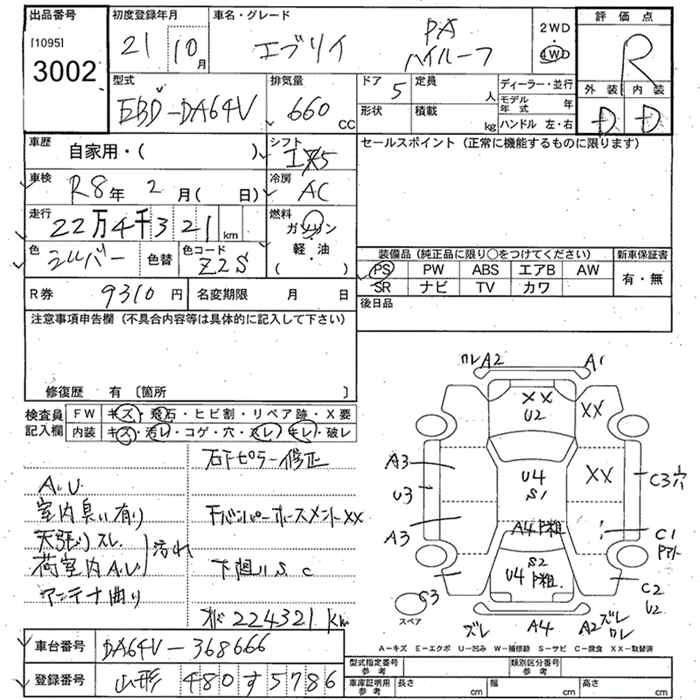 出品番号
[1095]
3002
初度登録年月
21年 10月
車名・グレード
エブリイ PA ハイルーフ
2WD
4WD
評価点
R
外装 内装
D D
型式
EBD-DA64V
排気量
660 CC
ドア 5
形状
定員 人
積載 kg
ディーラー・並行
モデル年式 年
ハンドル 左・右
車歴
自家用・( )
シフト
車検
R8年 2月( 日)
冷房
AC
走行
22万4千321 km
燃料
ガソリン
軽・油
( )
色
シルバー
色替
色コード
Z2S
R券 9310円
名変期限 月 日
セールスポイント (正常に機能するものに限ります)
装備品 (純正品に限り〇をつけてください)
新車保証書
PS PW ABS エアB AW
SR ナビ TV カワ
有・無
後日品
注意事項申告欄 (不具合内容等は具体的に記入して下さい)
修復歴 有 〔箇所 〕
検査員記入欄
FW キズ・飛石・ヒビ割・リペア跡・X要
内装 キズ・汚レ・コゲ・穴・スレ・キレ・破レ
右Fピラー修正
A.U
室内臭い有り
天張りスレ
荷室内A.U
汚れ
アンテナ曲り
下廻りS C
224321 km
A2 A1
XX U2 XX
A3 U3 U4 S1 XX C3穴
A3 A4 C1
S2 U4
C3 C2 U2
スペア
ズレ A4 A2 ズレ
A-キズ E-エクボ U-凹み W-補修跡 S-サビ C-腐食 XX-取替済
車台番号 DA64V-368666
登録番号 山形 480 す 5786
型式指定番号 参考
類別区分番号 参考
車庫証明用 参考
長さ cm
幅 cm
高さ cm